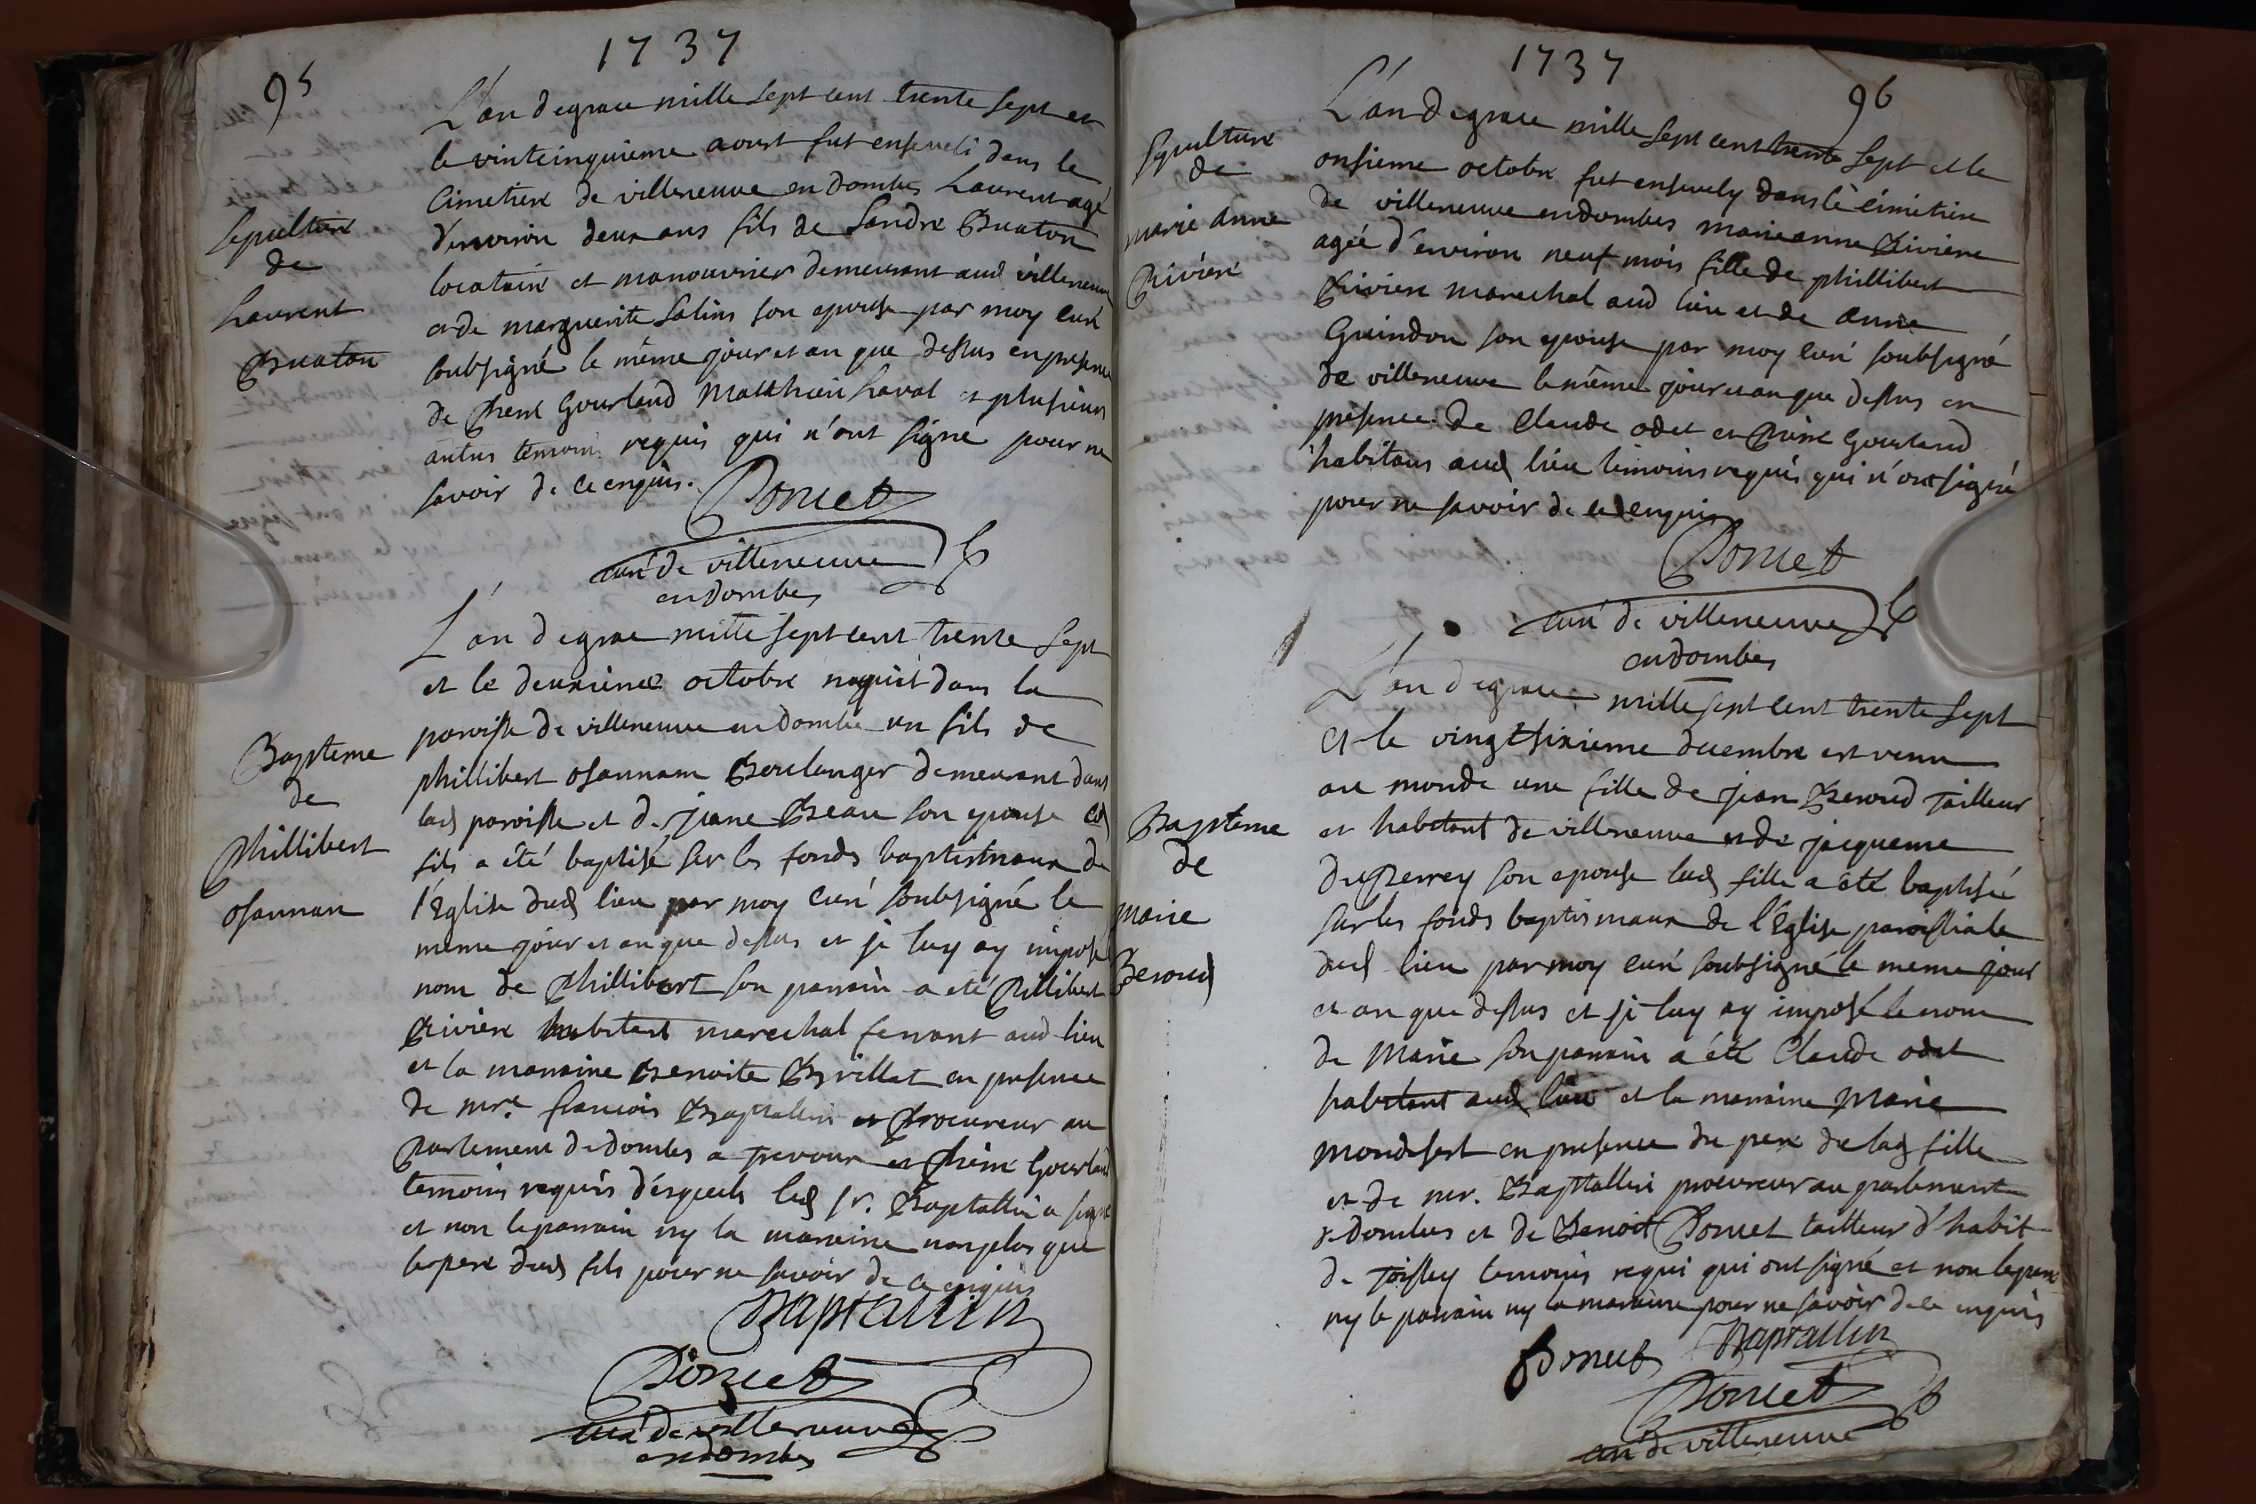 1737
95
L'an de grace mille sept cent trente sept et
le vintcinquieme aoust fut enseveli dans le
Cimetiere de villeneuve en dombes Laurent agé
d'environ deux ans fils de Sandre Buaton
locataire et manouvrier demeurant aud villeneuve
et de marguerite Salins son epouse par moy curé
soubsigné le même jour et an que dessus en presence
de Pierre Gourland Matthieu Laval et plusieurs
autres temoins requis qui n'ont signé pour ne
savoir de ce enquis.
Poncet
curé de villeneuve
en dombes
Sepulture
de
Laurent
Buaton
L'an de grace mille sept cent trente sept
et le deuxieme octobre naquit dans la
paroisse de villeneuve en dombe un fils de
phillibert osannam Boulanger demeurant dans
lad paroisse et de jeane Beau son epouse led
fils a été baptisé sur les fonds baptistmaux de
l'Eglise dud lieu par moy curé soubsigné le
meme jour et an que dessus et je luy ay imposé
nom de Phillibert son parrain a eté Pillibert
Riviere habitant marechal ferrant aud lieu
et la marraine Benoite Brillat en presence
de mre. francois Baptallin et Procureur au
Parlement de dombes a Trevoux et Pierre Gourland
temoins requis desquels led sr. Baptallin a signé
et non le parrain ny la maraine non plus que
le pere dud fils pour ne savoir de ce enquis
Baptallin
Poncet
curé de villeneuve
en dombes
Bapteme
de
Phillibert
osannan
1737
96
L'an de grace mille sept cent trente sept et le
onsieme octobre fut ensevely dans le cimetiere
de villeneuve en dombes marie anne Riviere
agée d'environ neuf mois fille de phillibert
Riviere marechal aud lieu et de anne
Guindon son epouse par moy curé soubsigné
de villeneuve le même jour et an que dessus en
presence de Claude odet et Pierre Gourland
habitans aud lieu temoins requis qui n'ont signé
pour ne savoir de ce enquis
Poncet
curé de villeneuve
en dombes
Sepulture
de
marie anne
Riviere
L'an de grace mille sept cent trente sept
et le vingtsixieme decembre est venu
au monde une fille de jean Beroud Tailleur
et habitant de villeneuve et de jacqueme
Duperrey son epouse lad fille a été baptisée
sur les fonds baptismaux de l'Eglise paroissiale
dud lieu par moy curé soubsigné le meme jour
et an que dessus et je luy ay imposé le nom
de Marie son parrain a été Claude odet
habitant aud lieu et la marraine Marie
mondesert en presence du pere de lad fille
et de mr. Baptallin procureur au parlement
de dombes et de Benoit Poncet tailleur d'habit
de Toissey temoins requi qui ont signé et non le pere
ny le parrain ny la maraine pour ne savoir de ce enquis
Poncet Baptallin
Poncet
curé de villeneuve
Bapteme
de
marie
Beroud